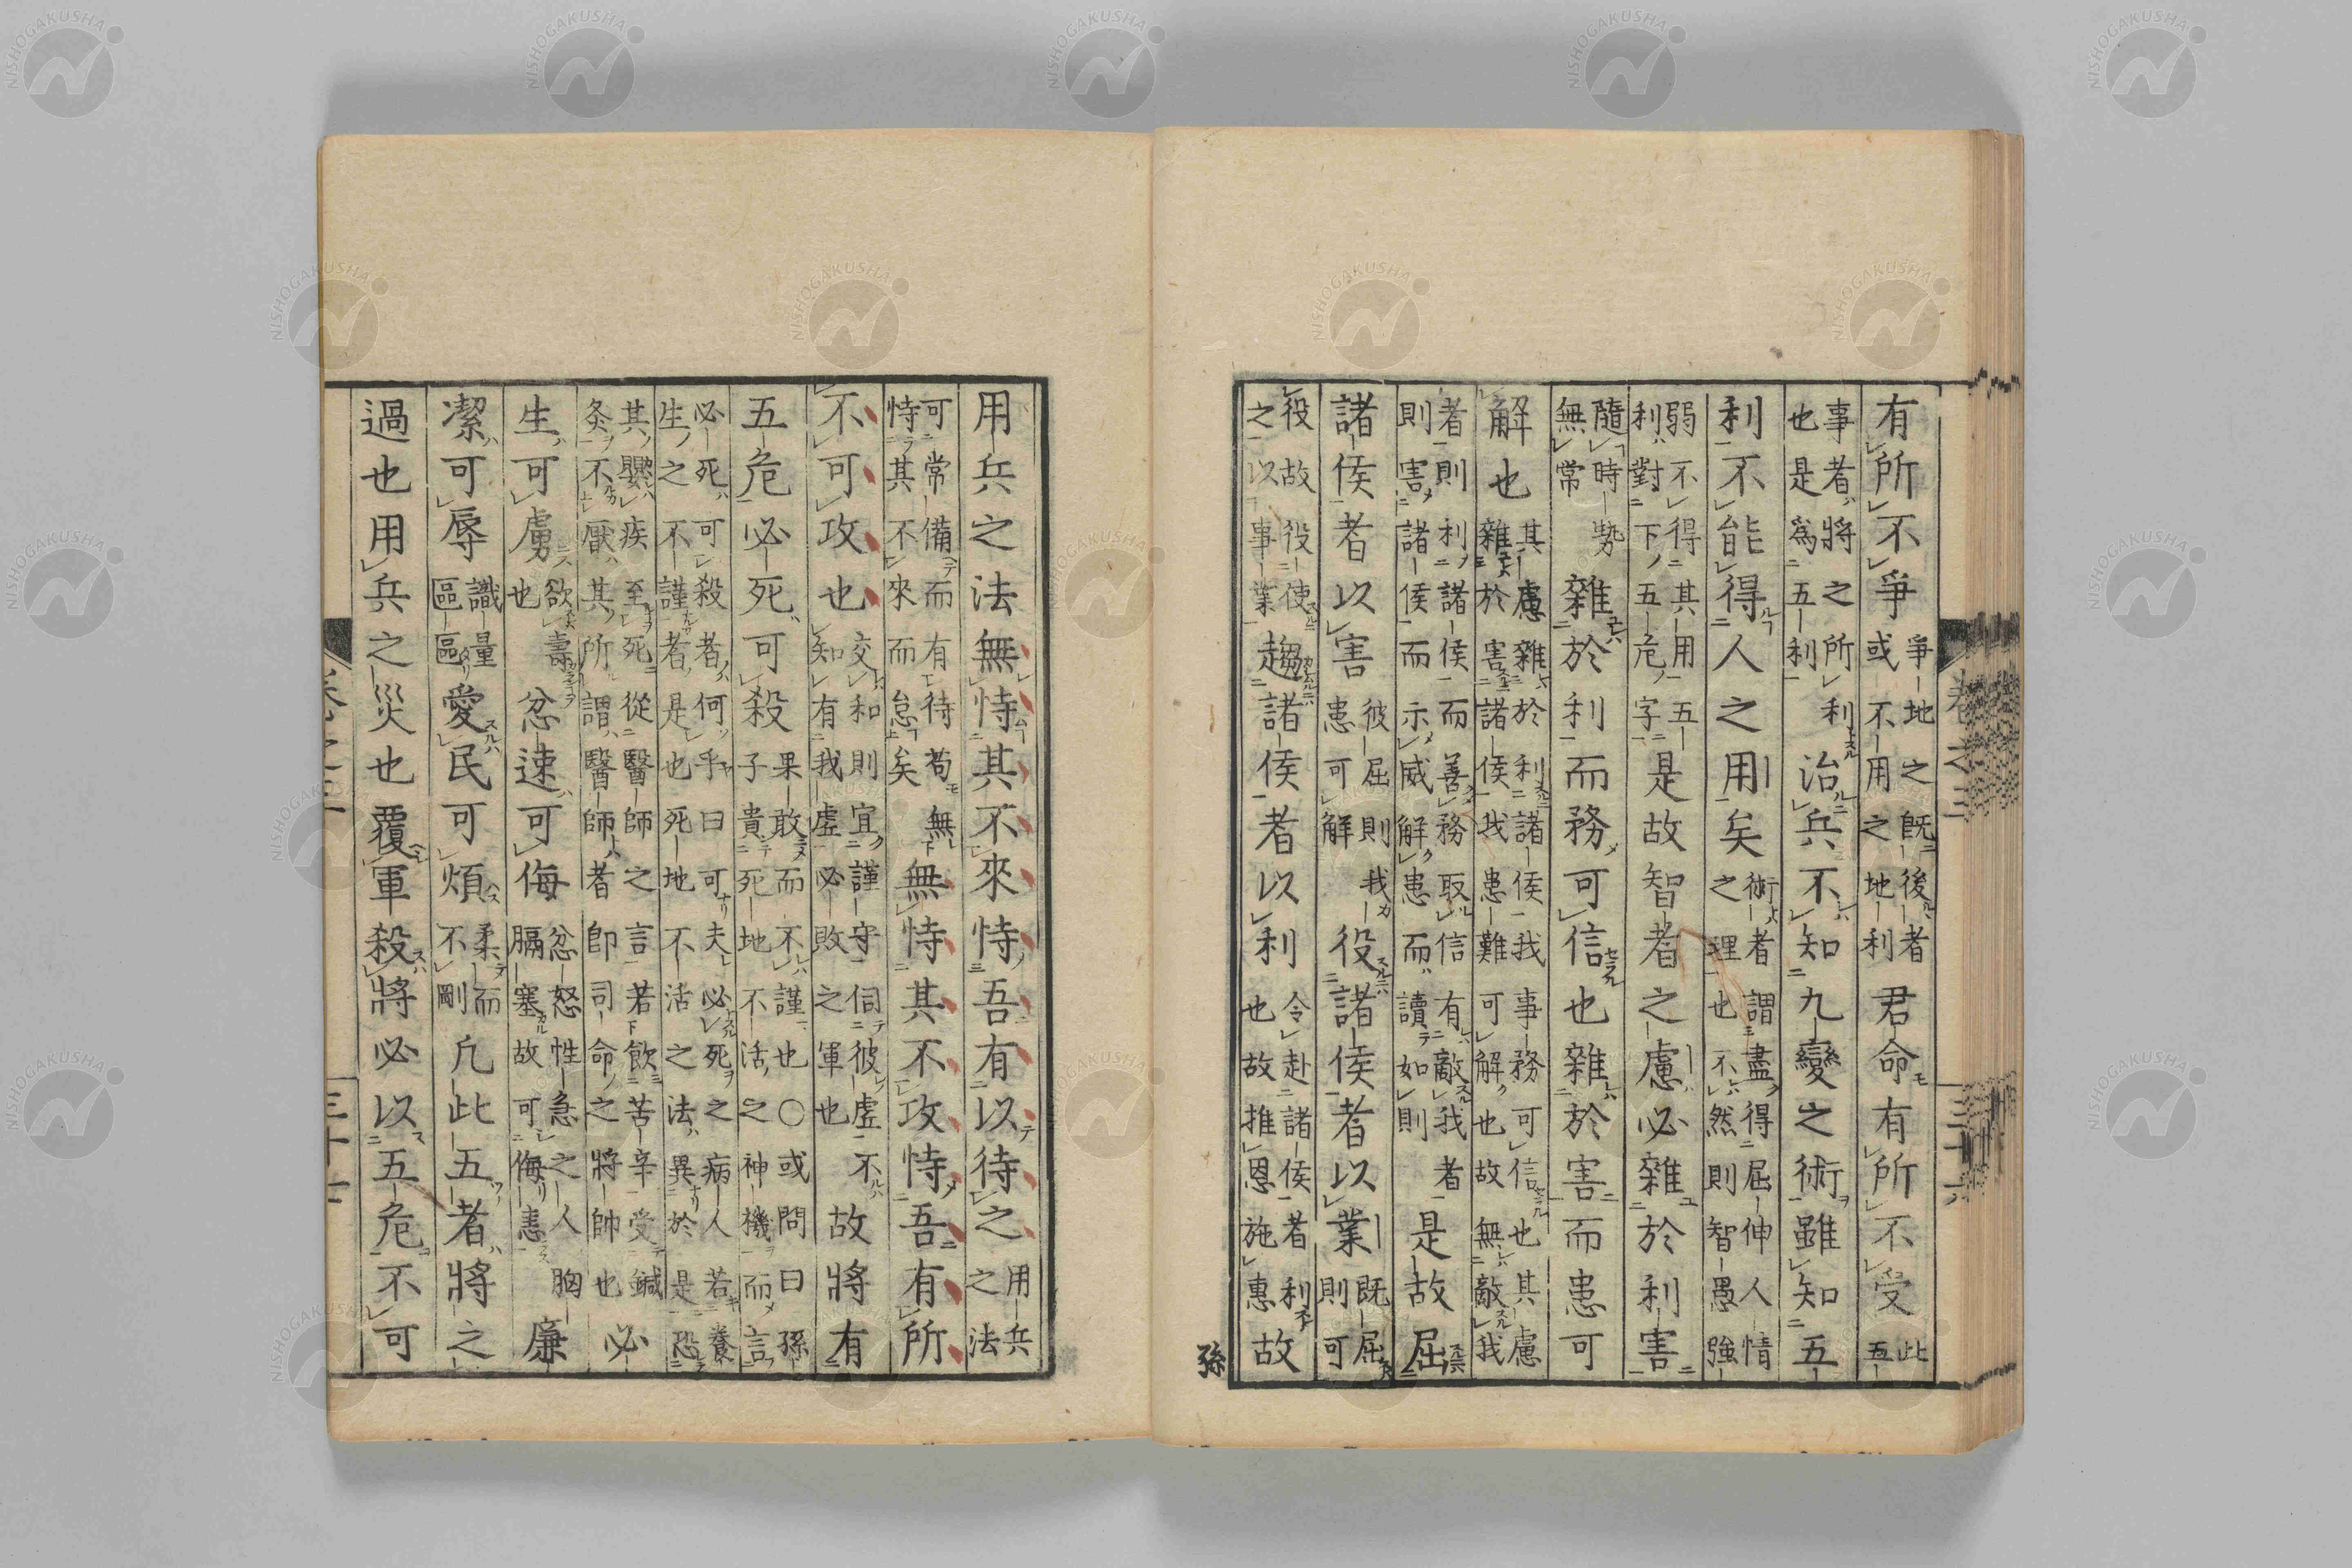 卷之三
三十六
有所不爭爭地之既後者或不用之地利君命有所不受此五
事者將之所利也是爲五利治兵不知九變之術雖知五
利不能得人之用矣術者謂盡得屈伸人情之理也不然則智愚強
弱不得其用五利對下五危字是故智者之慮必雜於利害
隨時勢無常雜於利而務可信也雜於害而患可
解也其慮雜於利諸侯我事務可信也其慮雜於害諸侯我患難可解也故無敵我
者則利諸侯而善務取信有敵我者則害諸侯而示威解患而讀如則是故屈
諸侯者以害彼屈則我患可解役諸侯者以業既屈則可
役故役使之以事業趨諸侯者以利令赴諸侯者利也故推恩施惠故
孫
用兵之法無恃其不來恃吾有以待之用兵之法
可常備而有待苟無恃其不來而怠矣無恃其不攻恃吾有所
不可攻也交和則宜謹守伺彼虛不知有我虛必敗之軍也故將有
五危必死可殺果敢而不謹也○或問曰孫子貴死地不活之神機而言
必死可殺者何乎曰可夫必死之病人若養生之不謹者是也死地不活之法異於是恐
其嬰疾至死從醫師之言若飲苦辛受鍼灸不厭其所謂醫師者即司命之將帥也必
生可虜欲壽也忿速可侮忿怒性急之人胸膈塞故可侮恚廉
潔可辱識量區區愛民可煩柔而不剛凡此五者將之
過也用兵之災也覆軍殺將必以五危不可